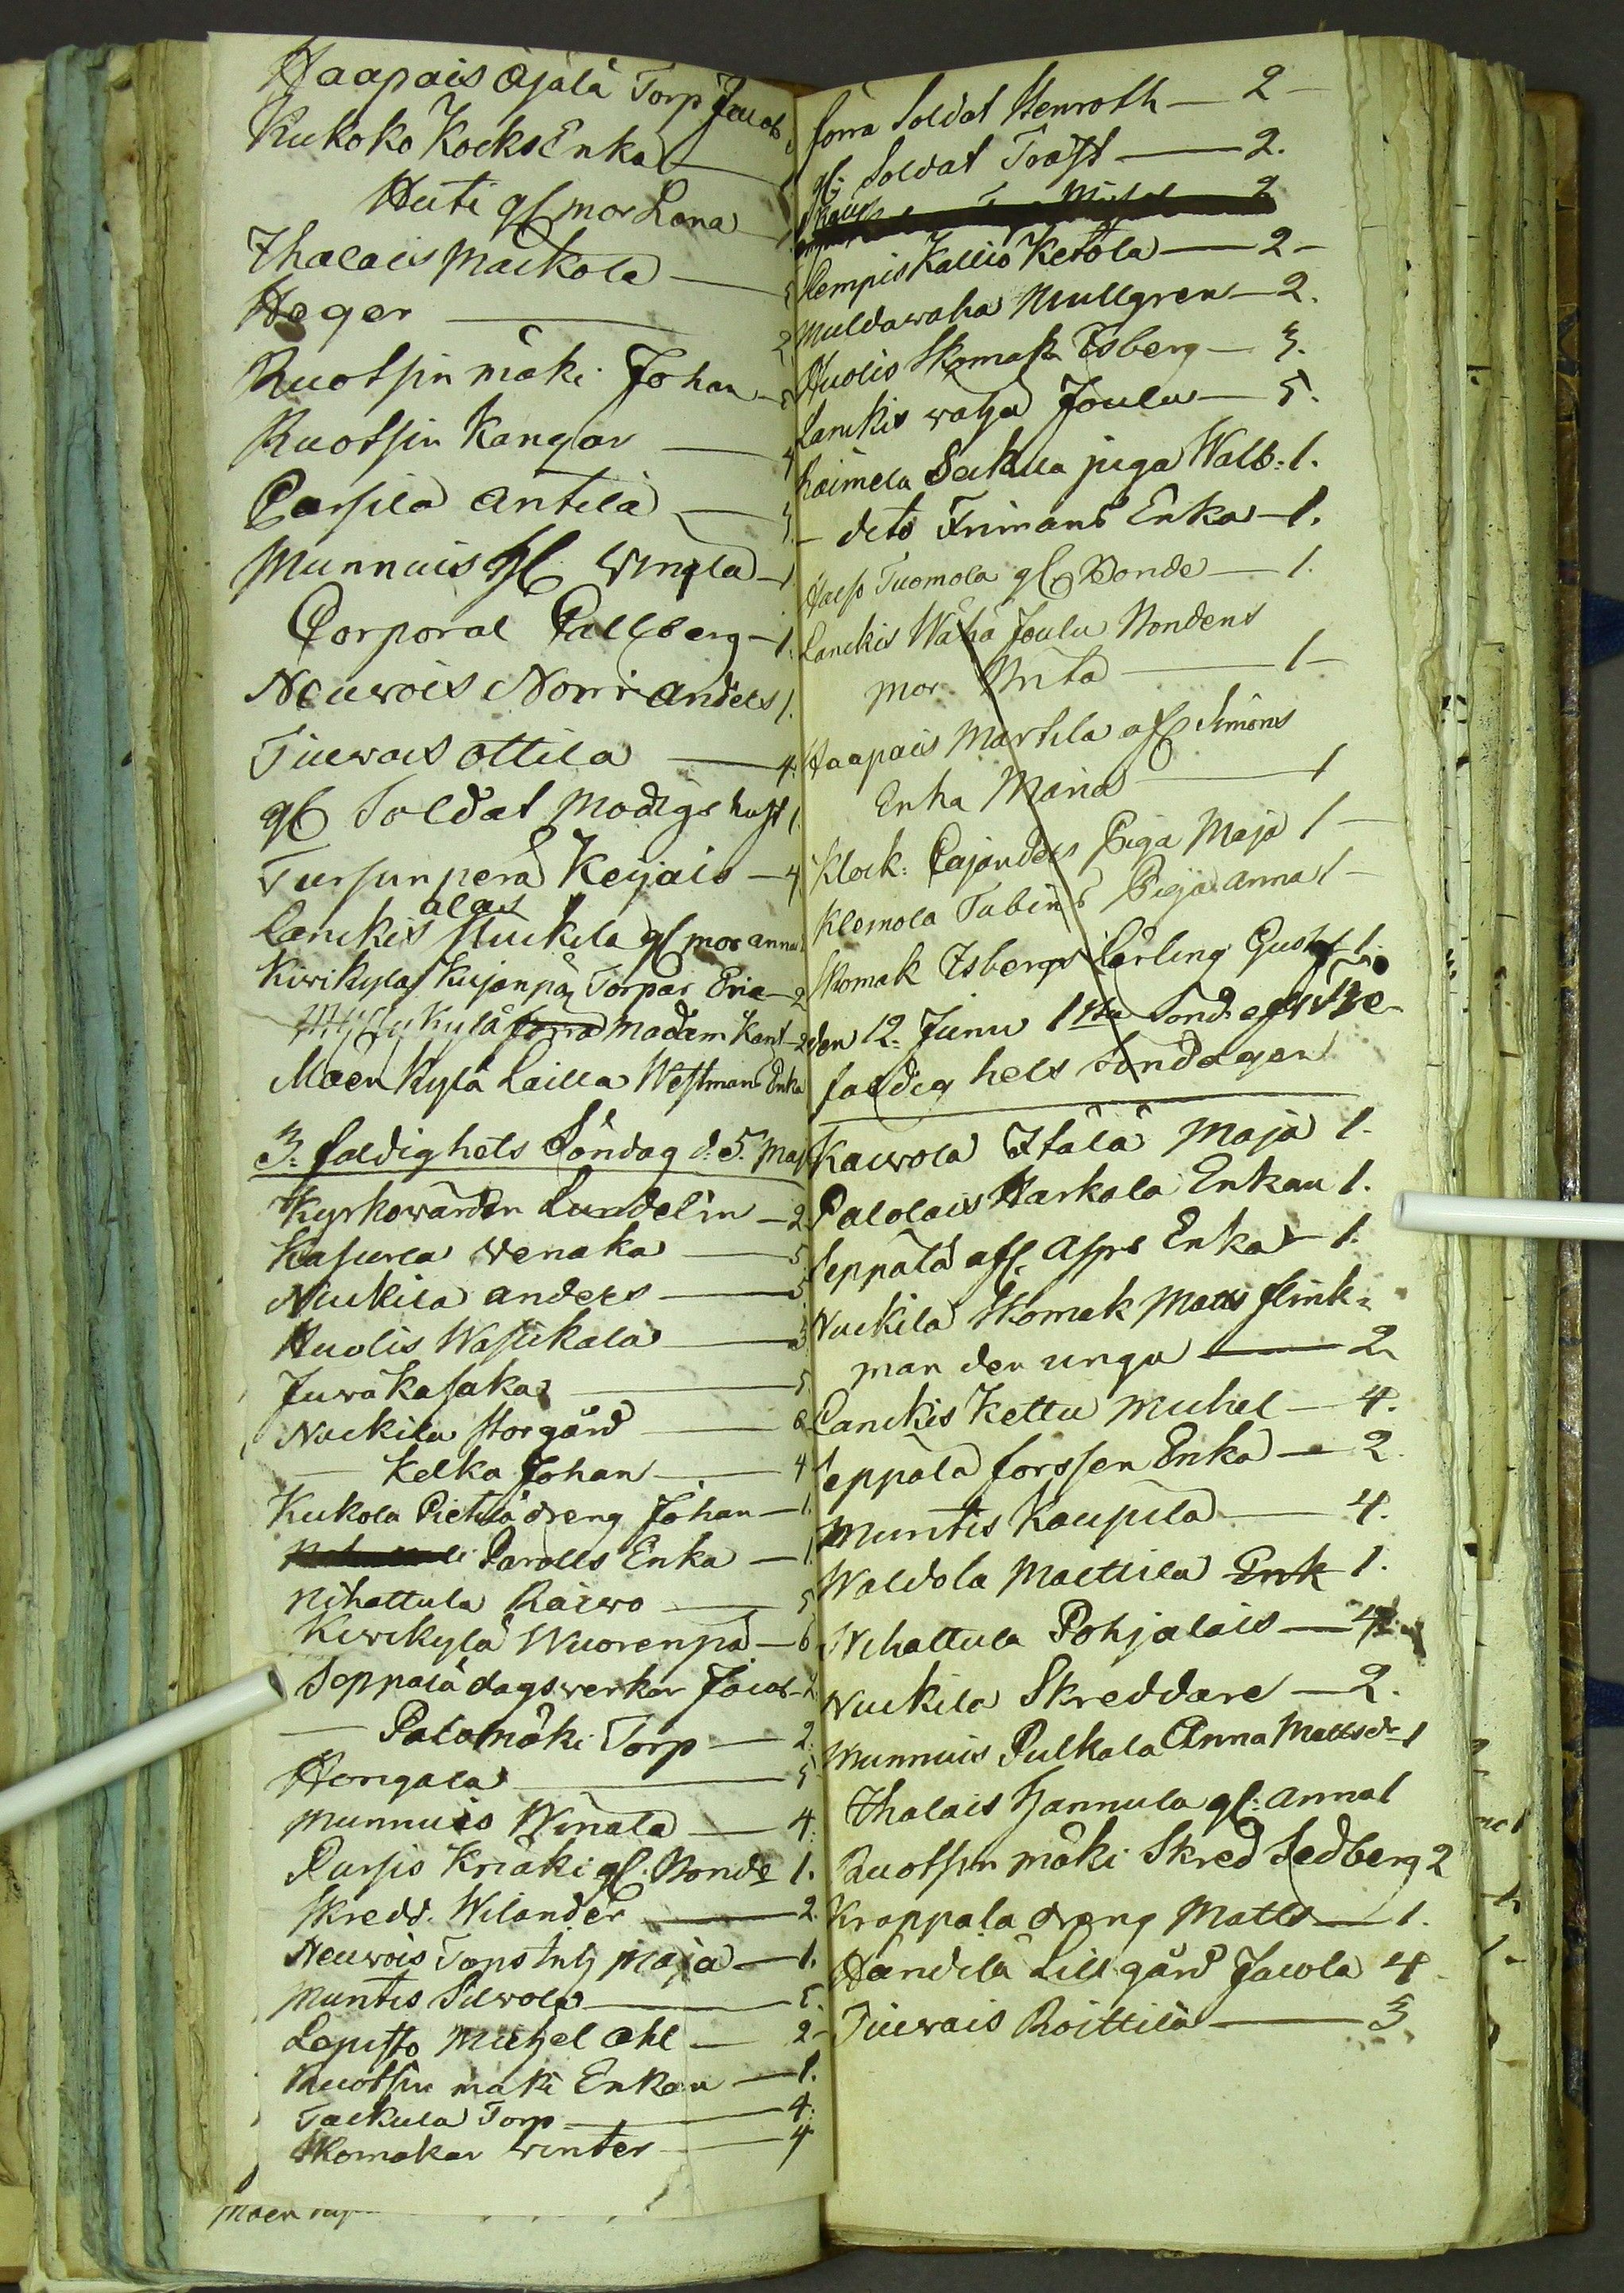 Haapais Äjälä Torp Jacob
Kukoko Kocks Enka
Huti gl mor Lena
Ihalais Maikola
Heger 2
Ruotsin mäki Johan
Ruotsin Kangar 4
Parsila Antila
Munnuis gl. Wingla 1
Corporal Pallberg 1.
Neuwois Norri Anders 1.
Tiuwais Ottila 4.
gl Soldat Modigs hust 1.
Tursunperä Keijais 4
alas
Lanckis Stuckila gl mor anna
Kiwikylä Kujanpä Torpar Eric 2
kylä förra Madam Kant 2
Mäenkylä Lailla Westmans Enka
3. faldighets Söndag d. 5. Maj
Kyrkowärden Lundelin 2.
Kasurla Wenaka 5
Niuckila Anders 5
Huolis Wasikala 3
Juwa Kasaka 5
Nuckila Storgård 6
Kelka Johan 4
Kukola Pietilä dreng Johan 1
Parolls Enka 1.
Nihattula Raiwo 5
Kiwikylä Wuorenpä 6
Seppälä dagswerkar Jacob 2
Palomäki Torp 2.
Hongala 5
Munnuis Winala 4.
Pursis Knäki gl. Bonde 1.
Skredd. Wilander 2.
Neuwois Torp Maja 1.
Muntis Silwola 5.
Lepistö Michel Ahl 2
Ruotsin mäki Enkan 1.
Tackula Torp 4.
Skomakar Winter 4
Mäen
förra Soldat Stenroth 2
gl. Soldat Tråst 2.
Michel 2
Lempis Kallio Ketola 2
Muldawaha Mullgren 2.
Huolis Skomak Isberg 3.
Lanckis waha Joulu 5.
haimela Seikula piga Walb: 1.
dito Frimans Enka 1.
Tuomola gl Bonde 1.
Lanckis Wähä Joulu Bondens
mor Brita 1
Haapais Martila afl Simons
Enka Maria 1
Klock: Cajanders Piga Maja 1
Klemola Tabins Piga Anna 1
Skomak Isbergs Lärling Gustaf 1.
den 12. Junii 1sta Sond. efter Tre
faldighets Söndagen
Kauwola Itälä Maja 1.
Palolais Harkola Enkan 1.
Seppälä afl. Asprs Enka 1.
Nuckila Skomak Matts flink-
man den unga 2
Lanckis Kettu Michel 4.
Seppälä forssen Enka 2.
Muntis Kaupila 4.
Waldola Mattila Enk 1.
Nihattula Pohjalais 4
Nuckila Skreddare 2.
Munnuis Pulkala Anna Mattsdr 1
Ihalais Hannula gl: Anna 1
Ruotsin mäki Skred Sedberg 2
Krappala dreng Matts 1.
Händilä Lillgård Jacola 4
Tiuwais Roittila 3